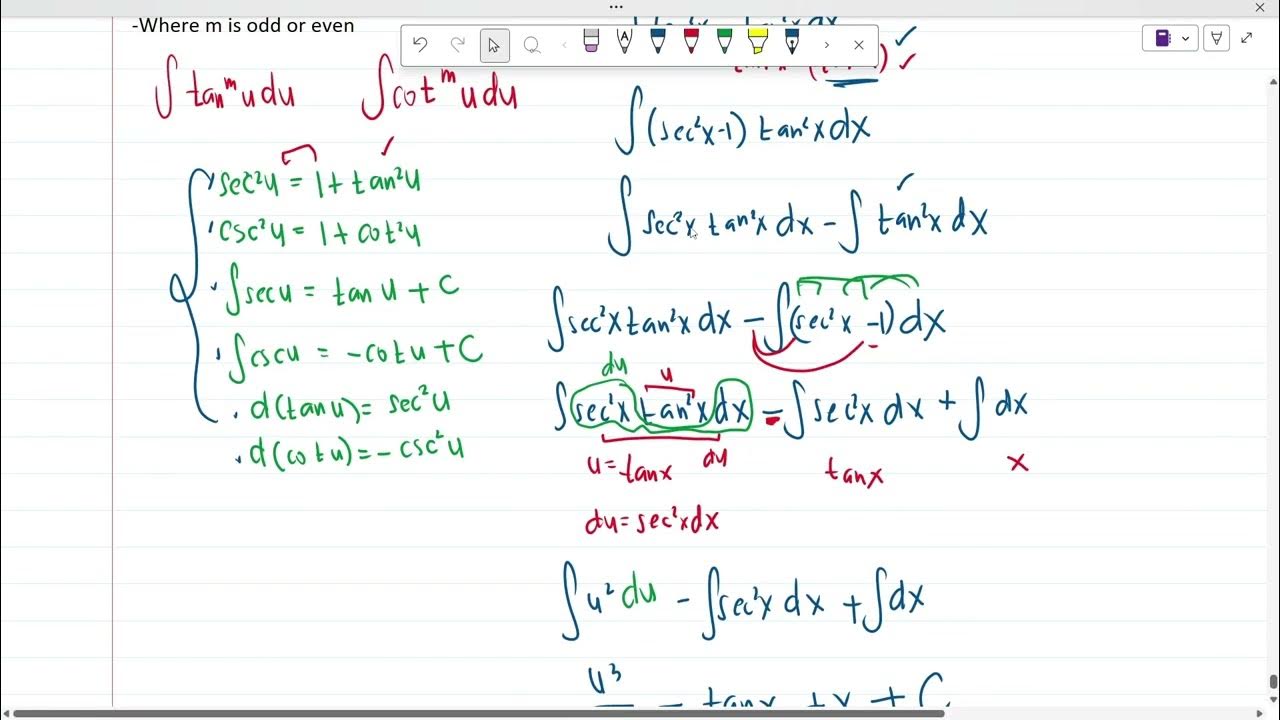 -Where m is odd or even
∫ tanᵐ u du ∫ cotᵐ u du
sec²u = 1 + tan²u
csc²u = 1 + cot²u
∫ sec u = tan u + C
∫ csc u = -cot u + C
d(tan u) = sec²u
d(cot u) = -csc²u
∫ (sec²x-1) tan²x dx
∫ sec²x tan²x dx - ∫ tan²x dx
∫ sec²x tan²x dx - ∫ (sec²x -1) dx
du u
∫ sec²x tan²x dx - ∫ sec²x dx + ∫ dx
u = tanx du tanx x
du = sec²x dx
∫ u² du - ∫ sec²x dx + ∫ dx
u³
- tanx + x + C